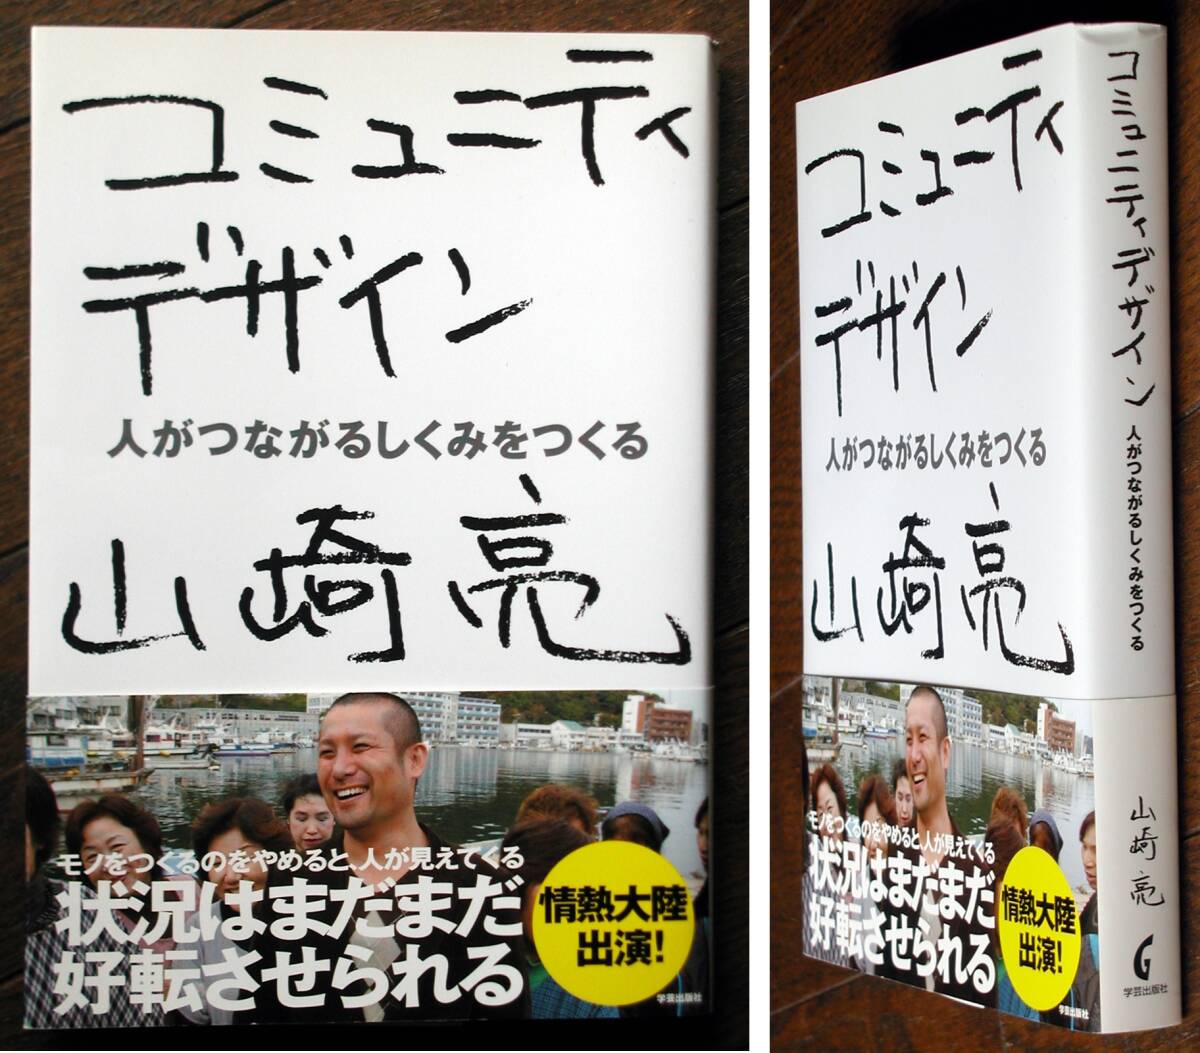 コミュニティ
デザイン
人がつながるしくみをつくる
山崎亮
モノをつくるのをやめると、人が見えてくる
状況はまだまだ
好転させられる
情熱大陸
出演!
学芸出版社
コミュニティ
デザイン
人がつながるしくみをつくる
山崎亮
モノをつくるのをやめると、人が見えてくる
状況はまだまだ
好転させられる
情熱大陸
出演!
学芸出版社
コミュニティデザイン 人がつながるしくみをつくる
山崎亮
G
学芸出版社